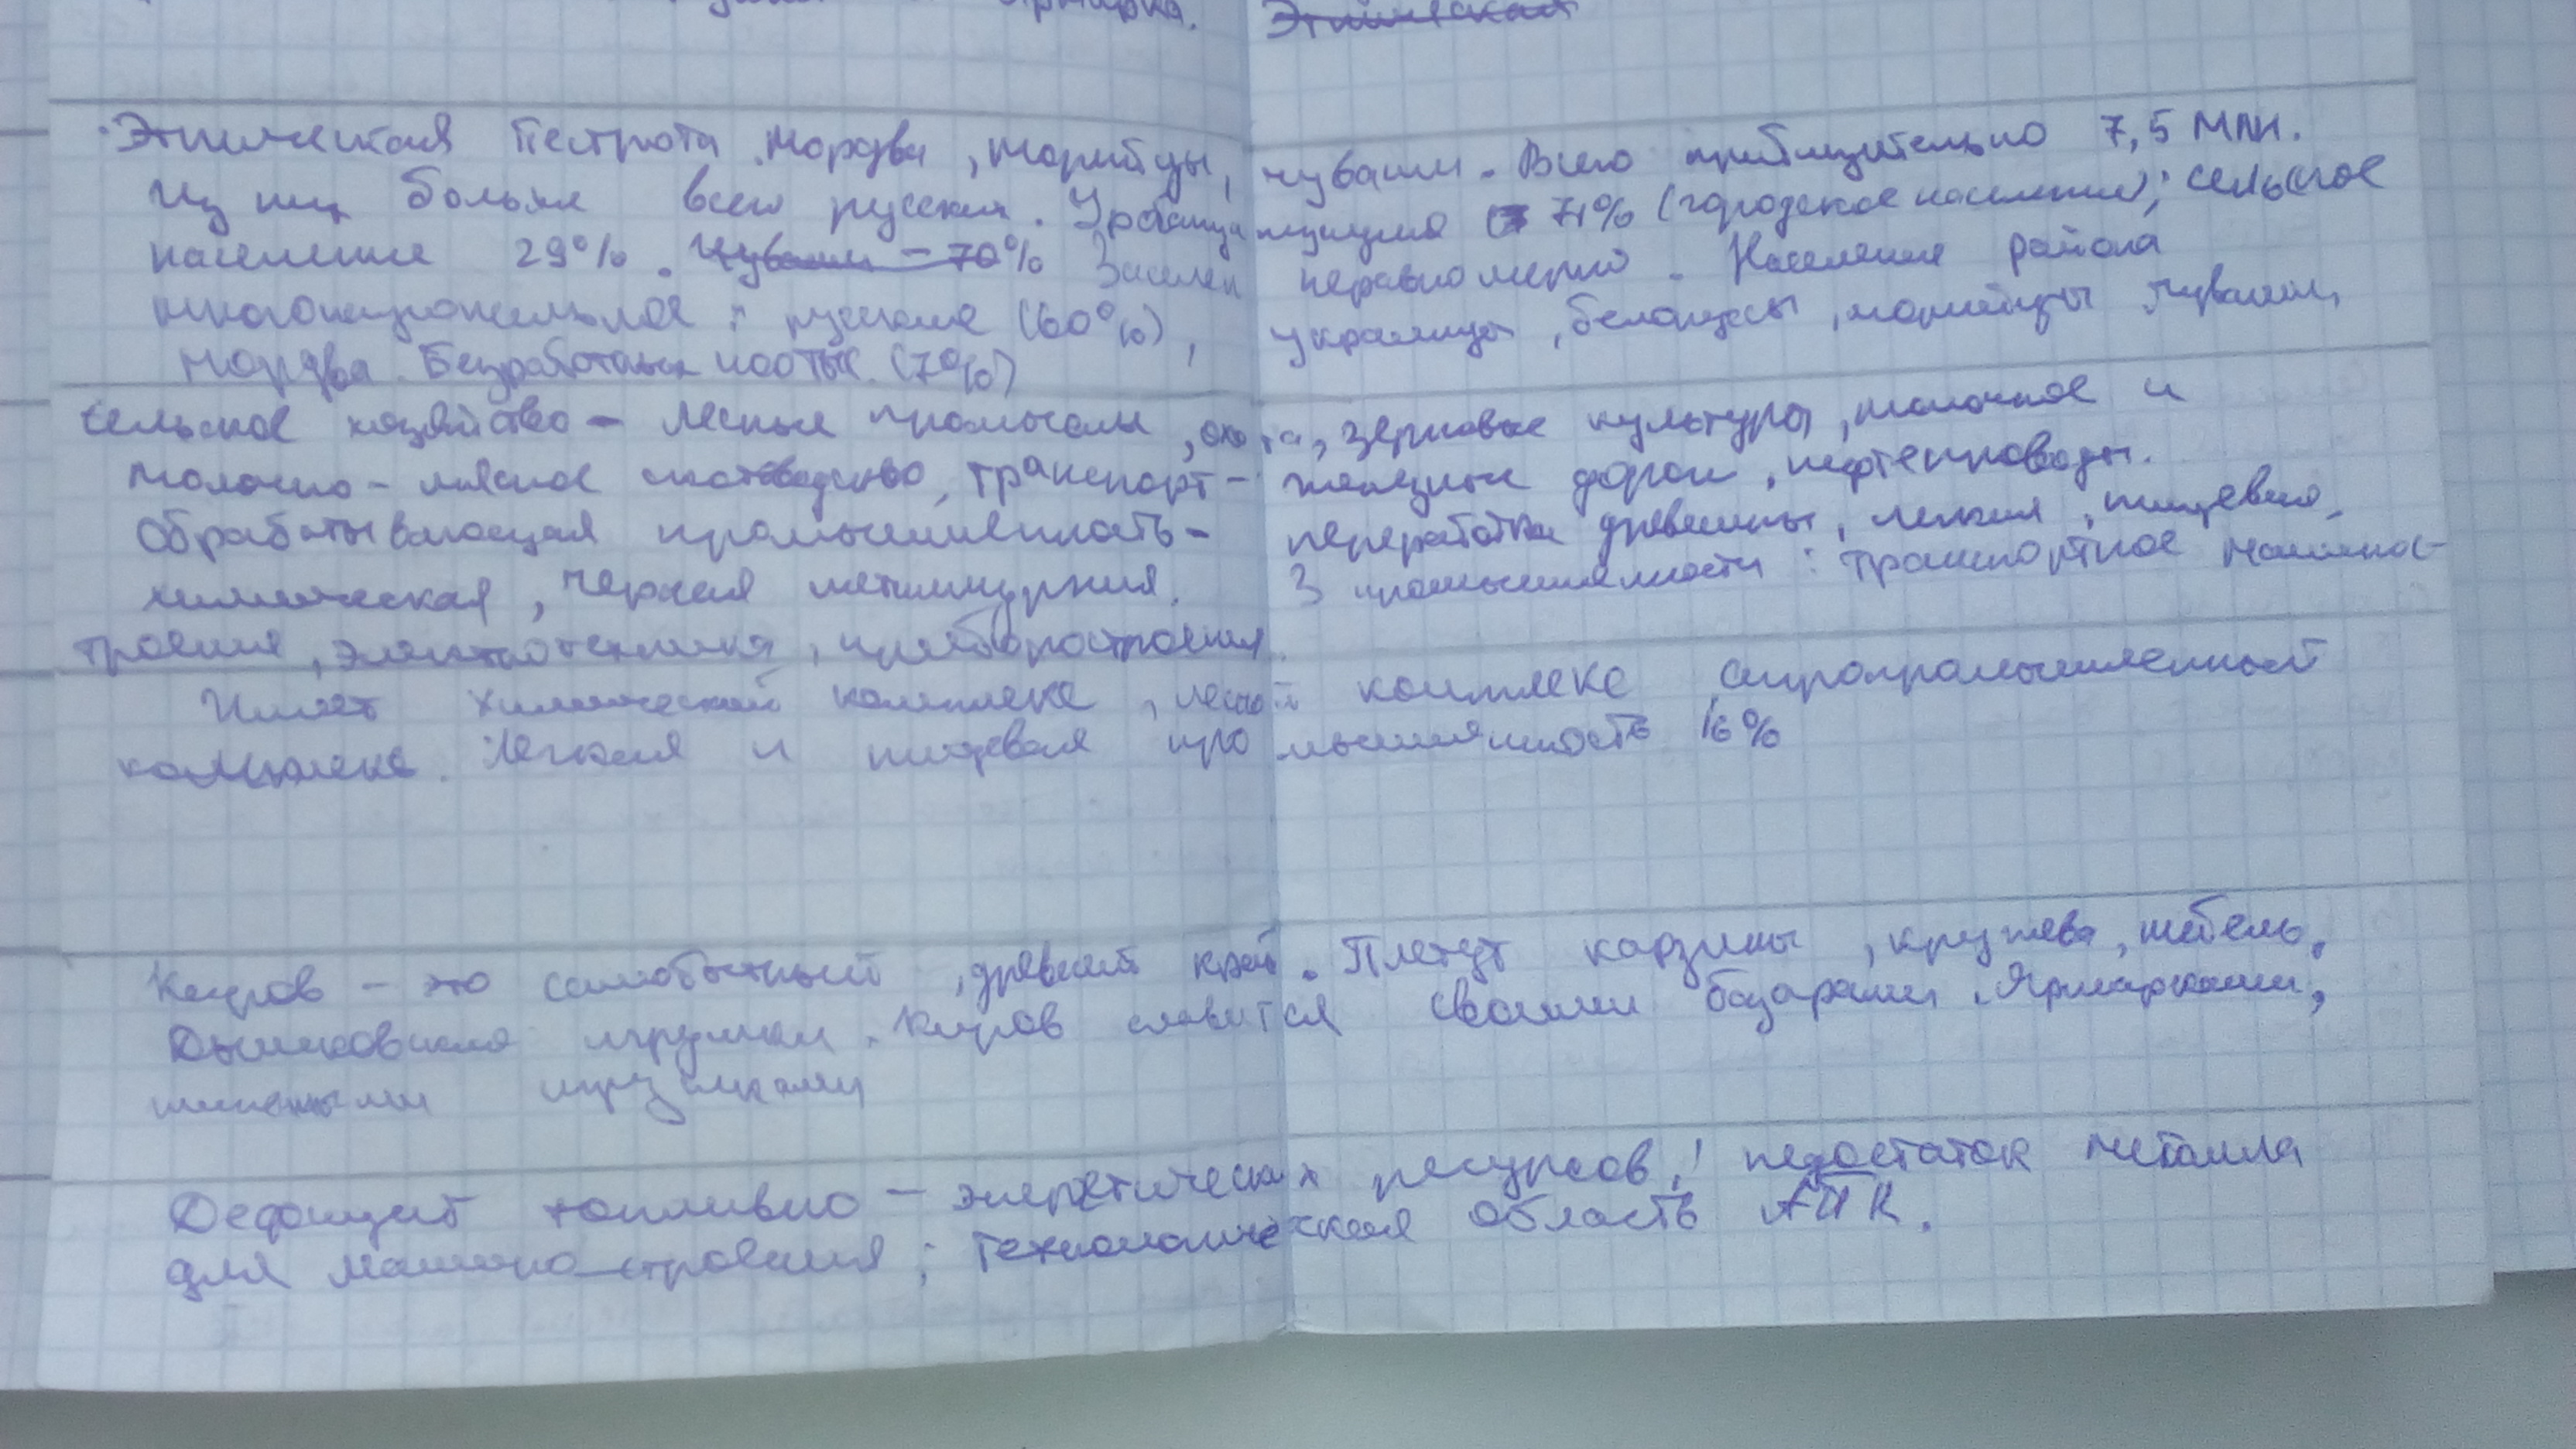 ярмарка. Этническая
Этническая пестрота. Мордва, марийцы, чуваши. Всего приблизительно 7,5 млн.
Из них больше всего русских. Урбанизация 71% (городское население); сельское
население 29%. Чуваши - 70% Заселен неравномерно. Население района
многонациональное: русские (60%), украинцы, белорусы, марийцы чуваши,
мордва. Безработных (7%)
сельское хозяйство - лесные промыслы, охота, зерновые культуры, молочное и
молочно-мясное скотоводство, транспорт - железные дороги, нефтепроводы.
Обрабатывающая промышленность - переработка древесины, легкая, пищевая,
химическая, черная металлургия. 3 промышленности: транспортное машинос-
троение, электротехника, приборостроения.
Имеет химический комплекс, лесной комплекс, агропромышленный
комплекс. Легкая и пищевая промышленность 16%
Киров - это самобытный, древний край. Плетут карзины, кружева, мебель,
Дымковская игрушки. Киров славится своими базарами, ярмарками,
игрушками
Дефицит топливно-энергетических ресурсов; недостаток металла
для машино-строения; технологическая область АПК.